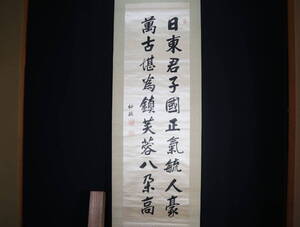 日東君子國正氣毓人豪
萬古堪為鎮芙蓉八朶高